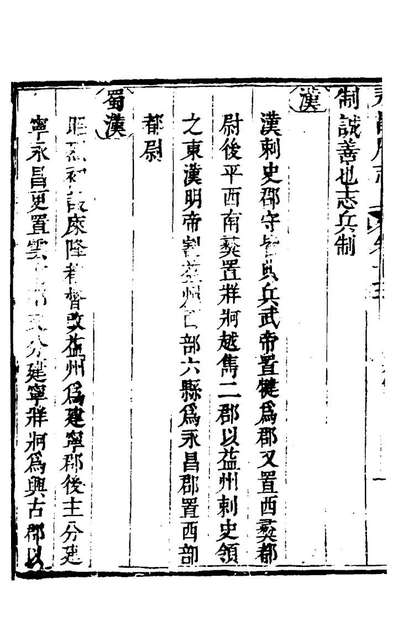 永昌府志
制誠善也志兵制
漢
漢刺史郡守皆典兵武帝置犍為郡又置西㒒都
尉後平西南㒒置牂牁越雋二郡以益州刺史領
之東漢明帝割益州西部六縣為永昌郡置西部
都尉
蜀漢
初設庲降都督改益州為建寧郡後主分建
寧永昌更置雲 郡 分建寧牂牁為興古郡以